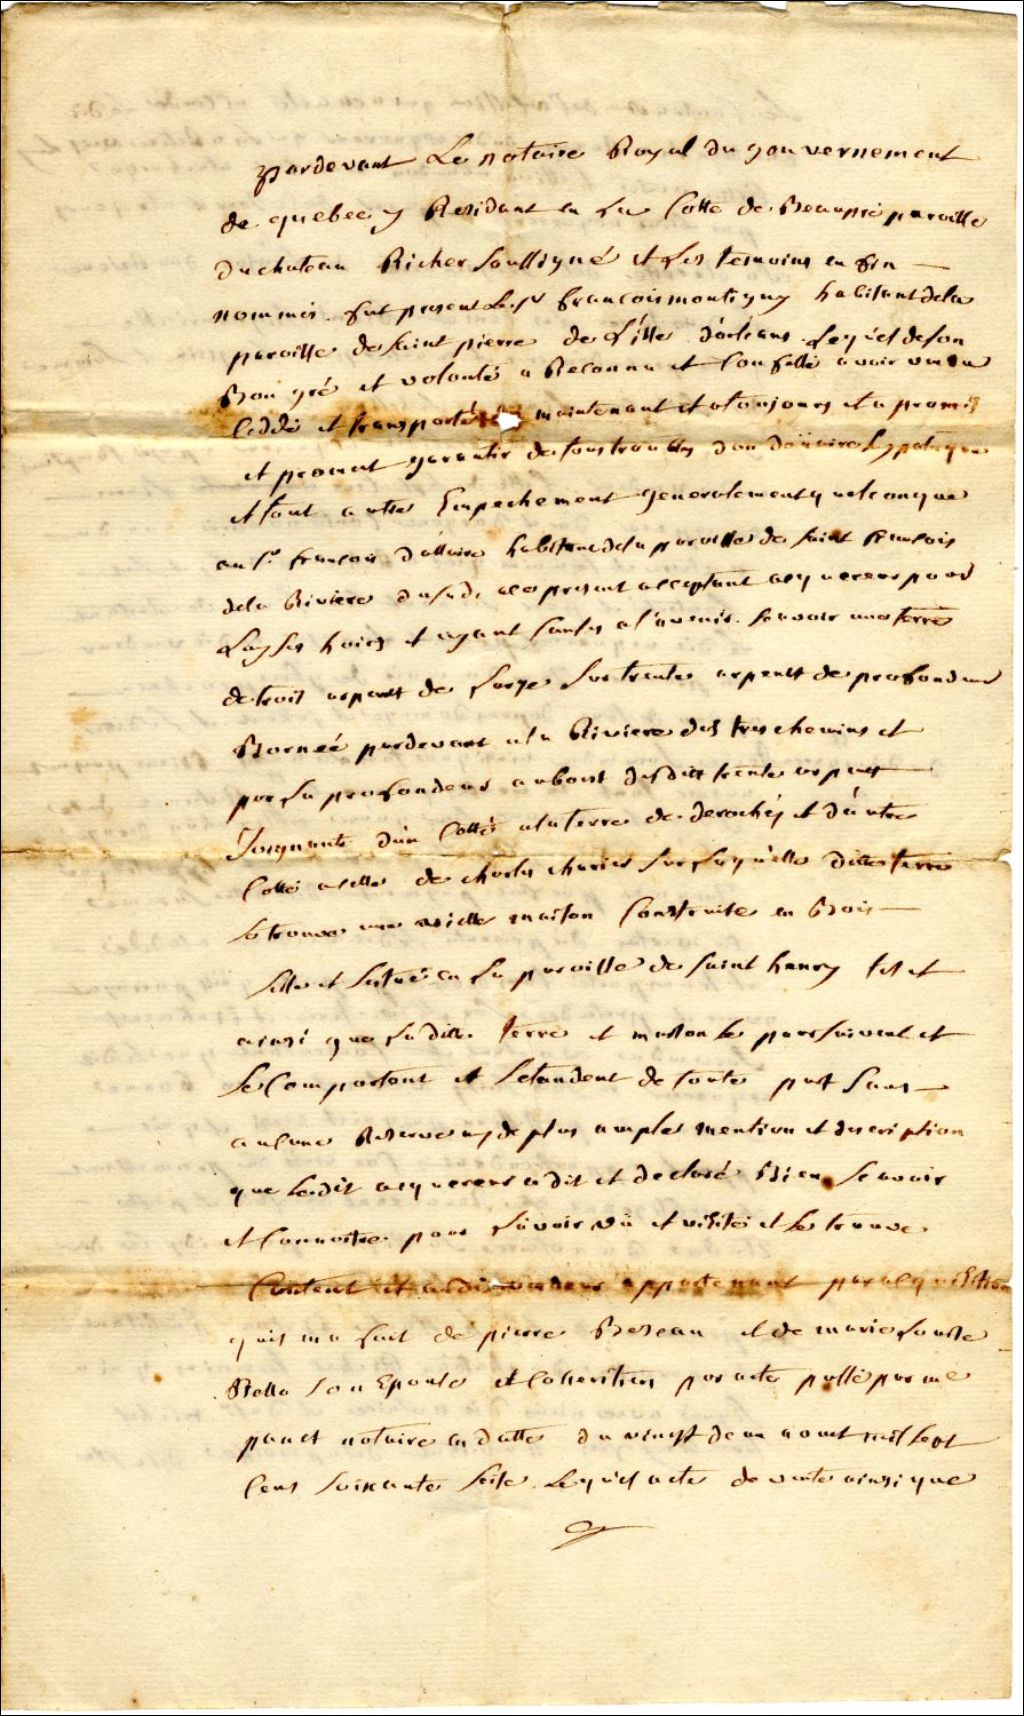 pardevant Le notaire Royal du gouvernement
de quebec y Residant en La Coste de Beaupré paroisse
du chateau Richer soussigné et Les temoins en fin
nommés. fut present Le sr francois montigny habitant dela
paroisse de saint pierre de L'isle d'orleans Lequel de son
Bon gré et volonté a Reconnu et Confessé avoir vendu
Ceddé et transporté maintenant et atoujours et a promis
et promet garantir de tous troubles don douaire hypoteque
et tout autre Empechement generalement quelconque
au sr francois d'allaire habitant dela paroisse de saint francois
dela Riviere du sud, ace present acceptant acquereur pour
Luy ses hoirs et ayant causes a l'avenir. scavoir une terre
de trois arpents de Large sur trente arpents de profondeur
Bornée pardevant ala Riviere des tres chemins et
par La profondeur aubout desdits trente arpents
Joignante d'un Costé ala terre de deroches et d'autre
Costé a celle de charles sur Laquelle ditte terre
se trouve une vieille maison Construite en Bois
sisse et scituée en La paroisse de saint henry tel et
ainsi que Laditte terre et maison se poursuivent et
se Comportent et setendent de toute part sans
aucune Reserve ny de plus ample mention et description
que Ledit acquereur a dit et declaré Bien scavoir
et Connoitre pour L'avoir vû et visité et se trouve
Content et audit vendeur appartenant par acquisition
quil en a fait de pierre Bezeau et de marie Louise
son Epouse et Coheritiers par acte passé par me
panet notaire en datte du vingt deux aoust mil sept
Cens soixante seise Lequel acte de vente ainsi que